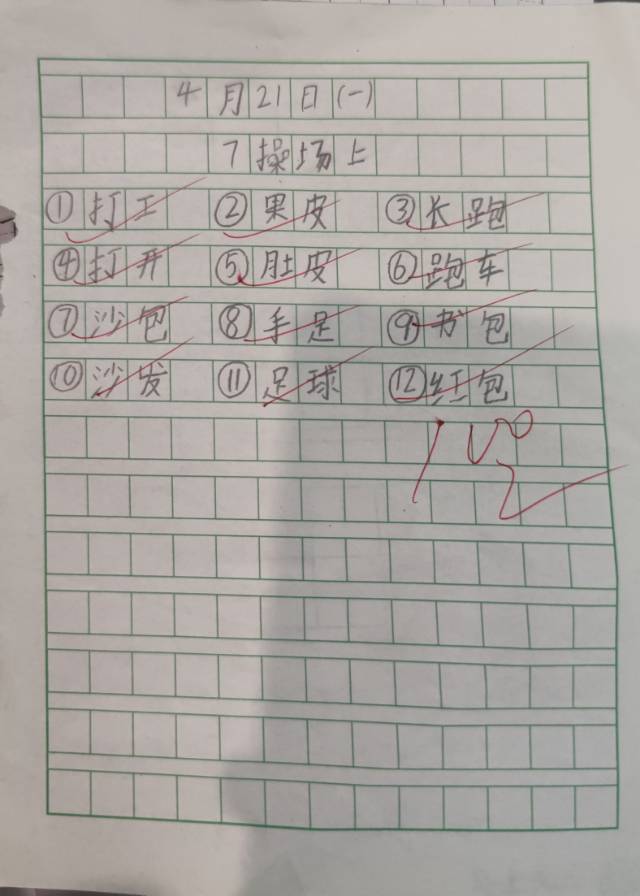 4月21日(一)
7 操场上
①打工 ②果皮 ③长跑
④打开 ⑤肚皮 ⑥跑车
⑦沙包 ⑧手足 ⑨书包
⑩沙发 ⑪足球 ⑫红包
100